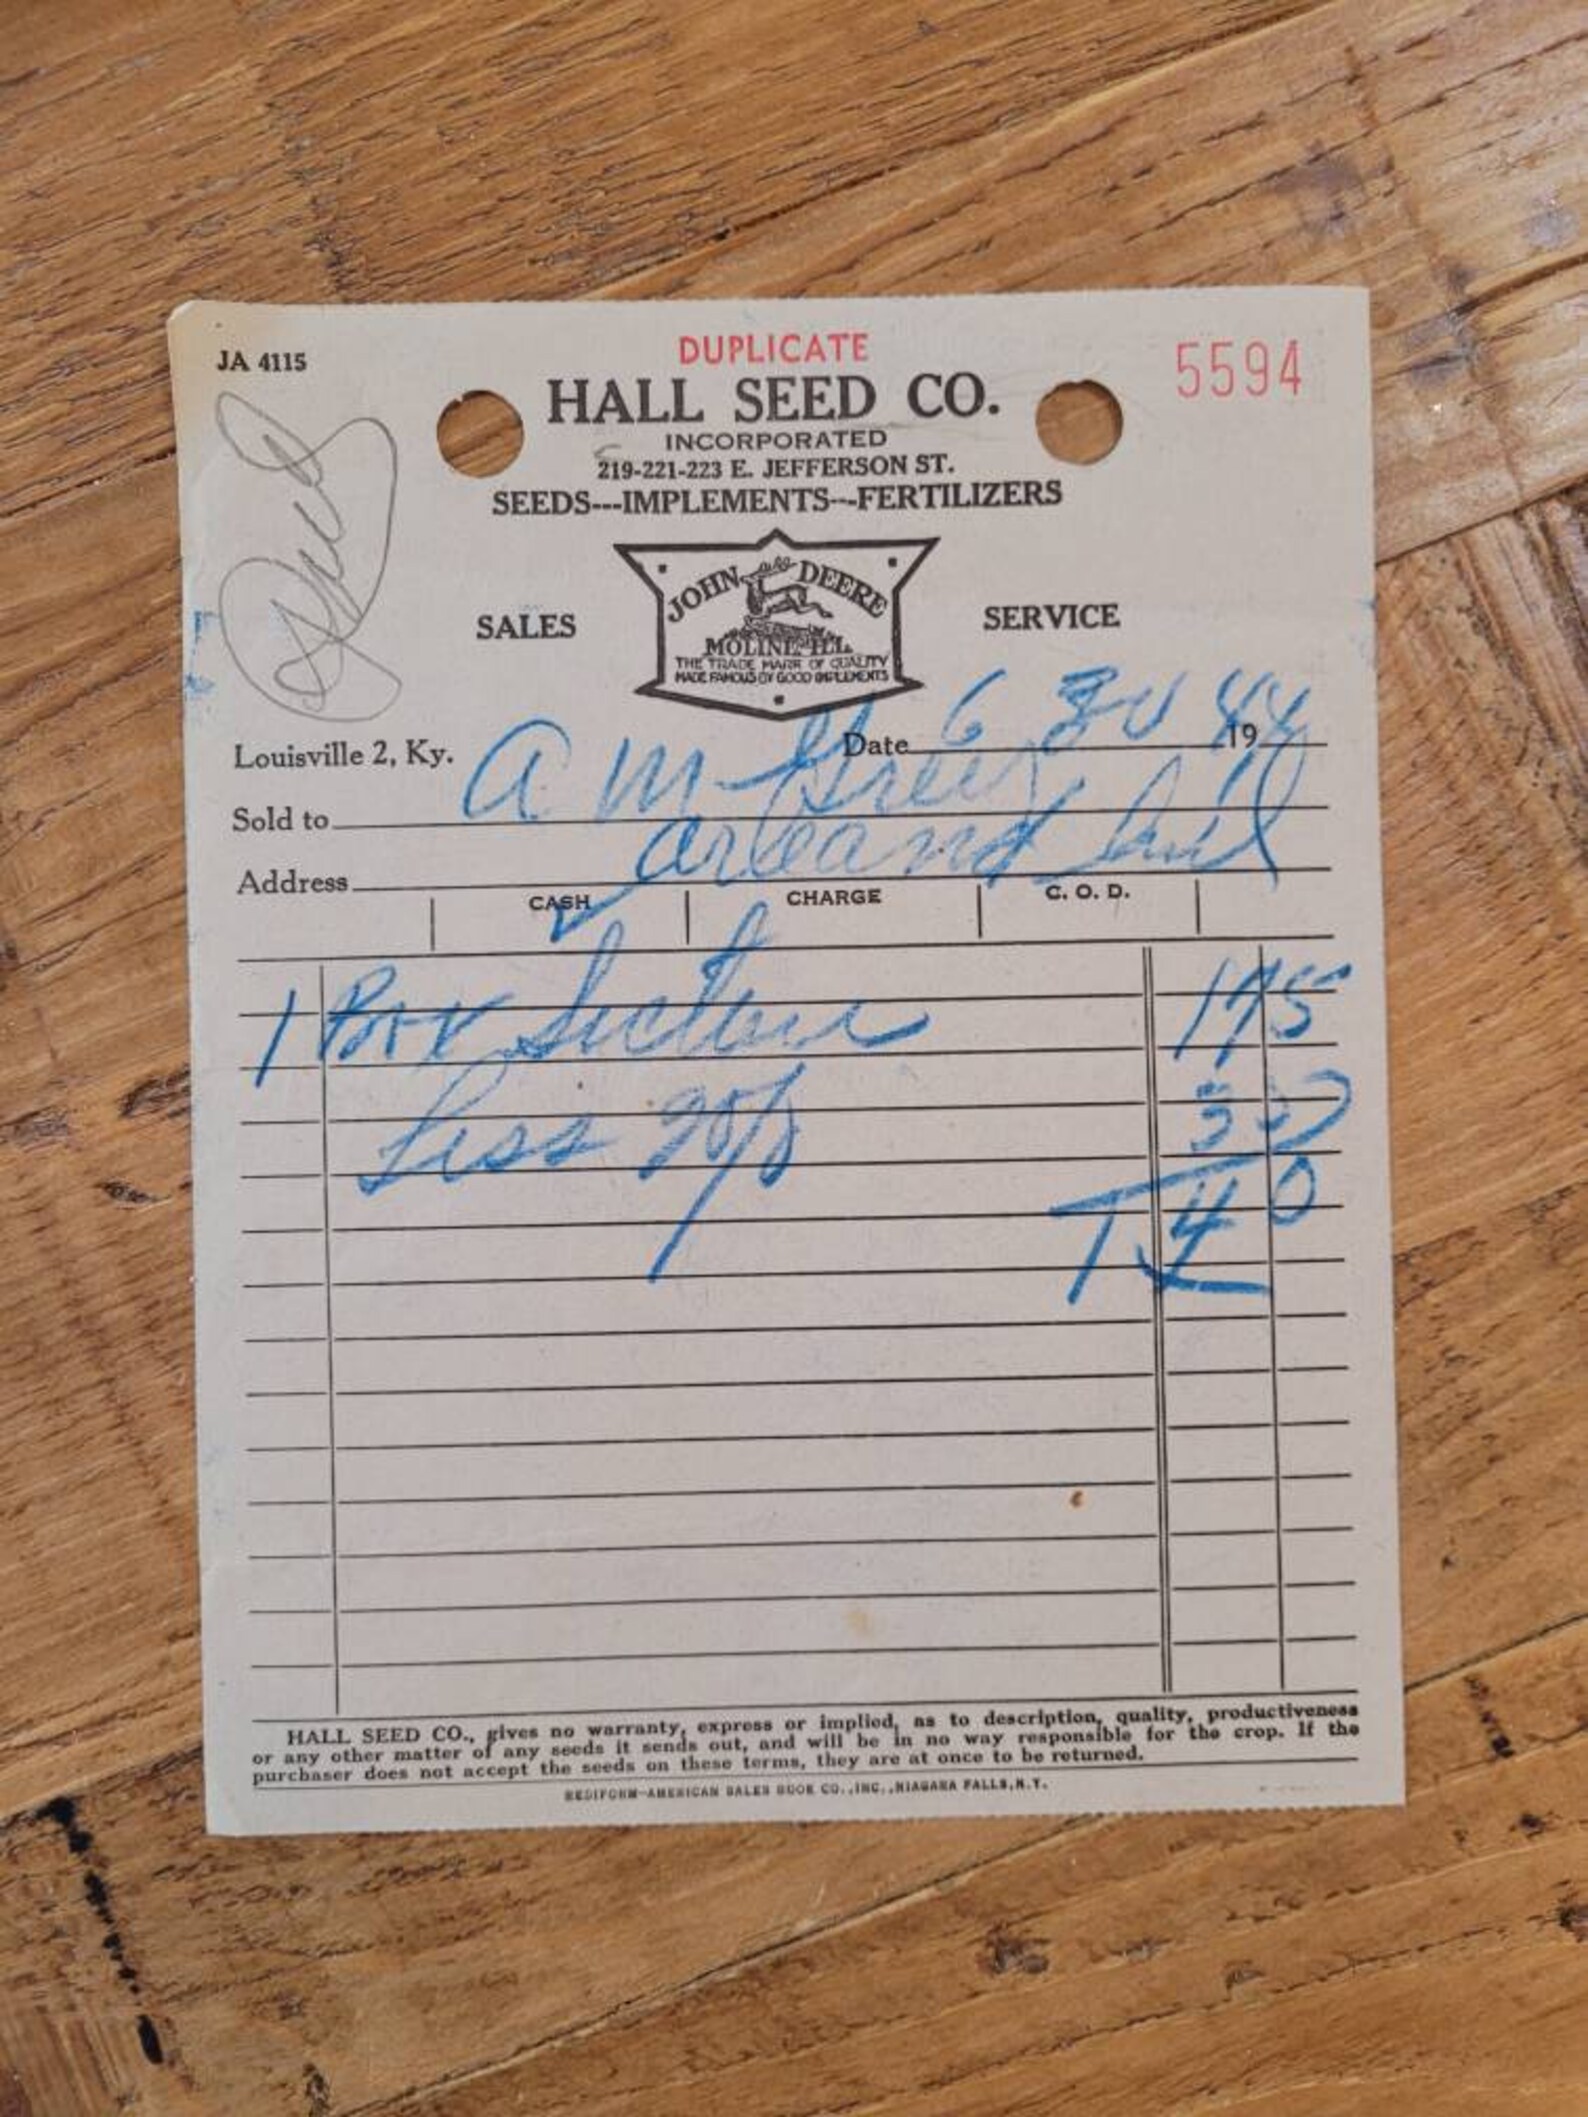 JA 4115
DUPLICATE
5594
HALL SEED CO.
INCORPORATED
219-221-223 E. JEFFERSON ST.
SEEDS---IMPLEMENTS---FERTILIZERS
JOHN DEERE
MOLINE, ILL.
THE TRADE MARK OF QUALITY
MADE FAMOUS BY GOOD IMPLEMENTS
SALES SERVICE
Louisville 2, Ky. Date 6 30 1944
Sold to A M
Address
CASH CHARGE C. O. D.
1 Box 1 75
Less 20%
1 40
HALL SEED CO., gives no warranty, express or implied, as to description, quality, productiveness
or any other matter of any seeds it sends out, and will be in no way responsible for the crop. If the
purchaser does not accept the seeds on these terms, they are at once to be returned.
REDIFORM-AMERICAN SALES BOOK CO., INC., NIAGARA FALLS, N.Y.